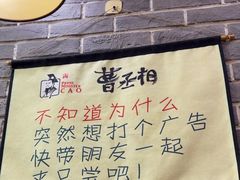 曹丞相
PRIME
MINISTER
CAO
不知道为什么
突然想打个广告
快带朋友一起
来品尝吧!